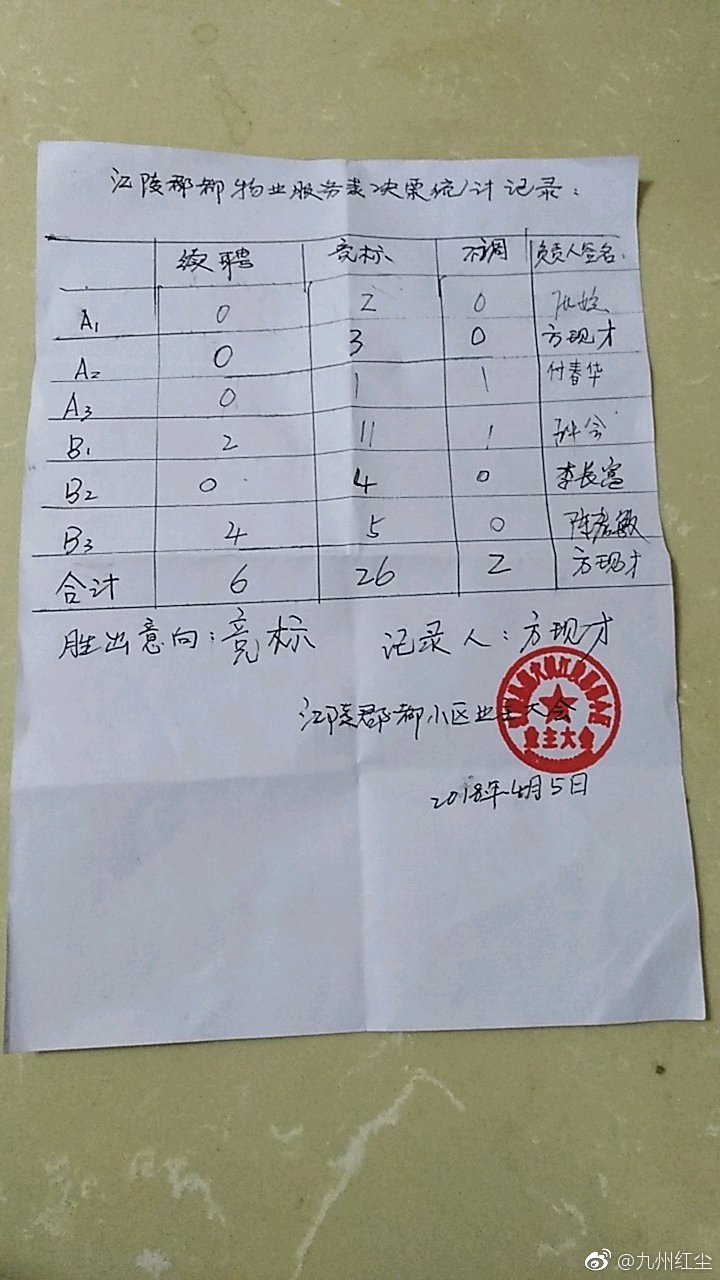 江陵郡都物业服务类决票统计记录：
续聘 竞标 不调 负责人签名：
A1 0 2 0
A2 0 3 0 方现才
A3 0 1 1 付春华
B1 2 11 1
B2 0 4 0 李长富
B3 4 5 0 陈彦敏
合计 6 26 2 方现才
胜出意向：竞标 记录人：方现才
江陵郡都小区业主大会
业主大会
2018年4月5日
@九州红尘